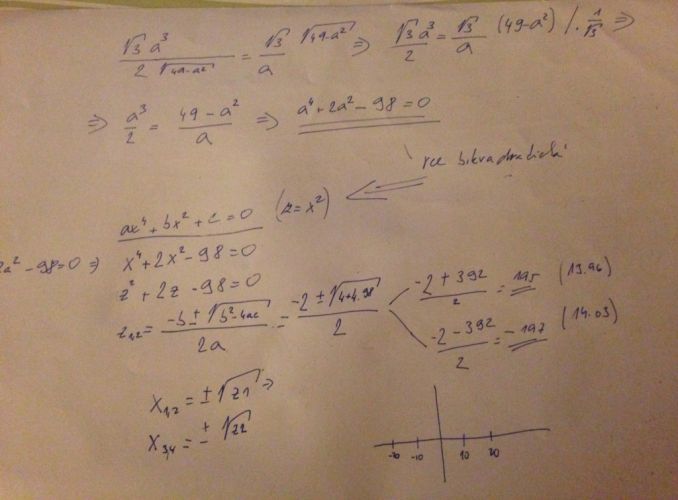 √3 a³ / 2√(49-a²) = √3/a √(49-a²) ⇒ √3 a³/2 = √3/a (49-a²) / · 1/√3 ⇒
⇒ a³/2 = (49-a²)/a ⇒ a⁴+2a²-98=0
rce bikvadratická
ax⁴+bx²+c=0 (z=x²)
2a²-98=0 ⇒ x⁴+2x²-98=0
z²+2z-98=0
z₁,₂ = (-b±√(b²-4ac))/2a = (-2±√(4+4·98))/2
(-2+392)/2 = 195 (13.96)
(-2-392)/2 = -197 (14.03)
x₁,₂ = ±√z1 ⇒
x₃,₄ = ±√z2
-20 -10 10 20